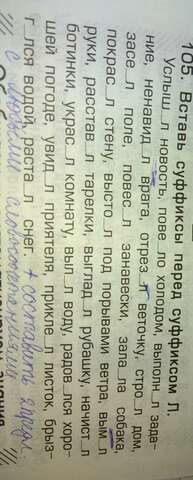 105. Вставь суффиксы перед суффиксом Л.
Услыш_л новость, пове_ло холодом, выполн_л зада-
ние, ненавид_л врага, отрез_л веточку, стро_л дом,
засе_л поле, повес_л занавески, зала_ла собака,
покрас_л стену, высто_л под порывами ветра, вым_л
руки, расстав_л тарелки, выглад_л рубашку, начист_л
ботинки, украс_л комнату, вып_л воду, радов_лся хоро-
шей погоде, увид_л приятеля, прикле_л листок, брыз-
г_лся водой, раста_л снег. + составить предл.
с любыми словосочетаниями